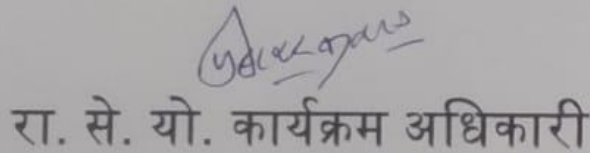 रा. से. यो. कार्यक्रम अधिकारी